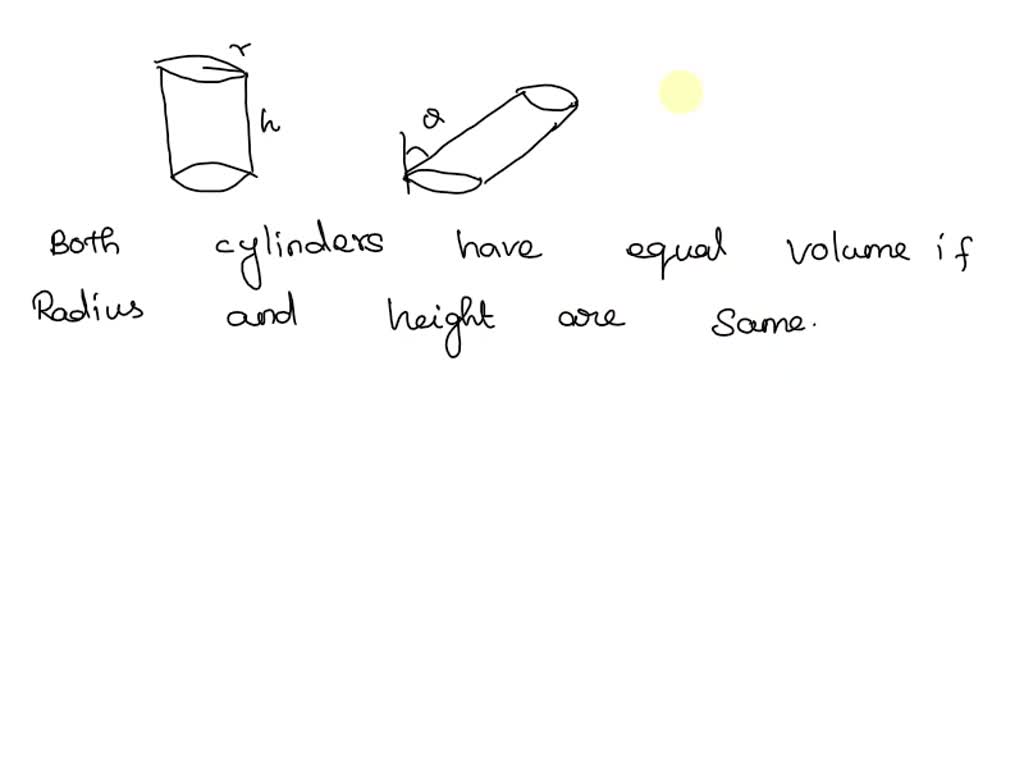 r
h
θ
Both cylinders have equal volume if
Radius and height are same.